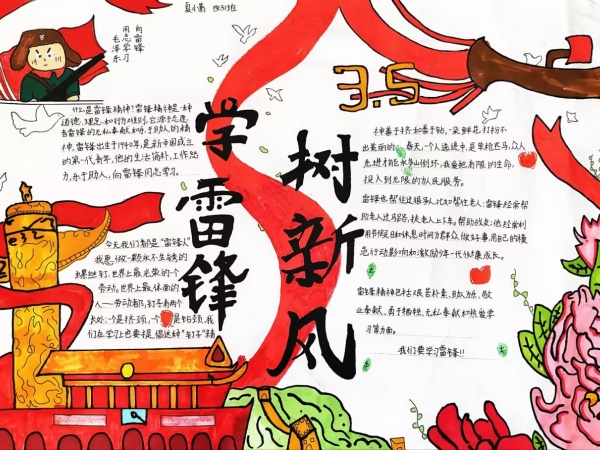 夏小茜 四(3)班
向雷锋
同志学习
毛泽东
3.5
学雷锋
树新风
什么是雷锋精神?雷锋精神是一种
道德、理念、和行为准则,它源于志愿
者雷锋的无私奉献和乐于助人的精
神。雷锋出生于1940年,是新中国成立
的第一代青年,他的生活简朴,工作努
力,乐于助人,向雷锋同志学习。
今天我们都是“雷锋人”
我愿做一颗永不生锈的
螺丝钉。世界上最光荣的
劳动。世界上最体面的
人——劳动者,钉子有两个
长处:一个是挤劲,一个是钻劲,我
们在学习上也要提倡这种“钉子”精
神善于挤和善于钻,一朵鲜花打扮不
出美丽的春天,个人先进单枪匹马,众人
先进才能移山倒环,我要把有限的生命,
投入到无限的为人民服务。
雷锋也帮助过很多人,比如帮忙老人;雷锋经常帮
助老人过马路,扶老人上下车。帮助战友:他经常利
用节假日和休息时间为群众做好事,用自己的模
范行动影响和激励少年一代健康成长。
雷锋精神包括艰苦朴素、助人为乐、敬
业奉献、勇于牺牲、无私奉献和热爱学
习等方面。
我们要学习雷锋!!